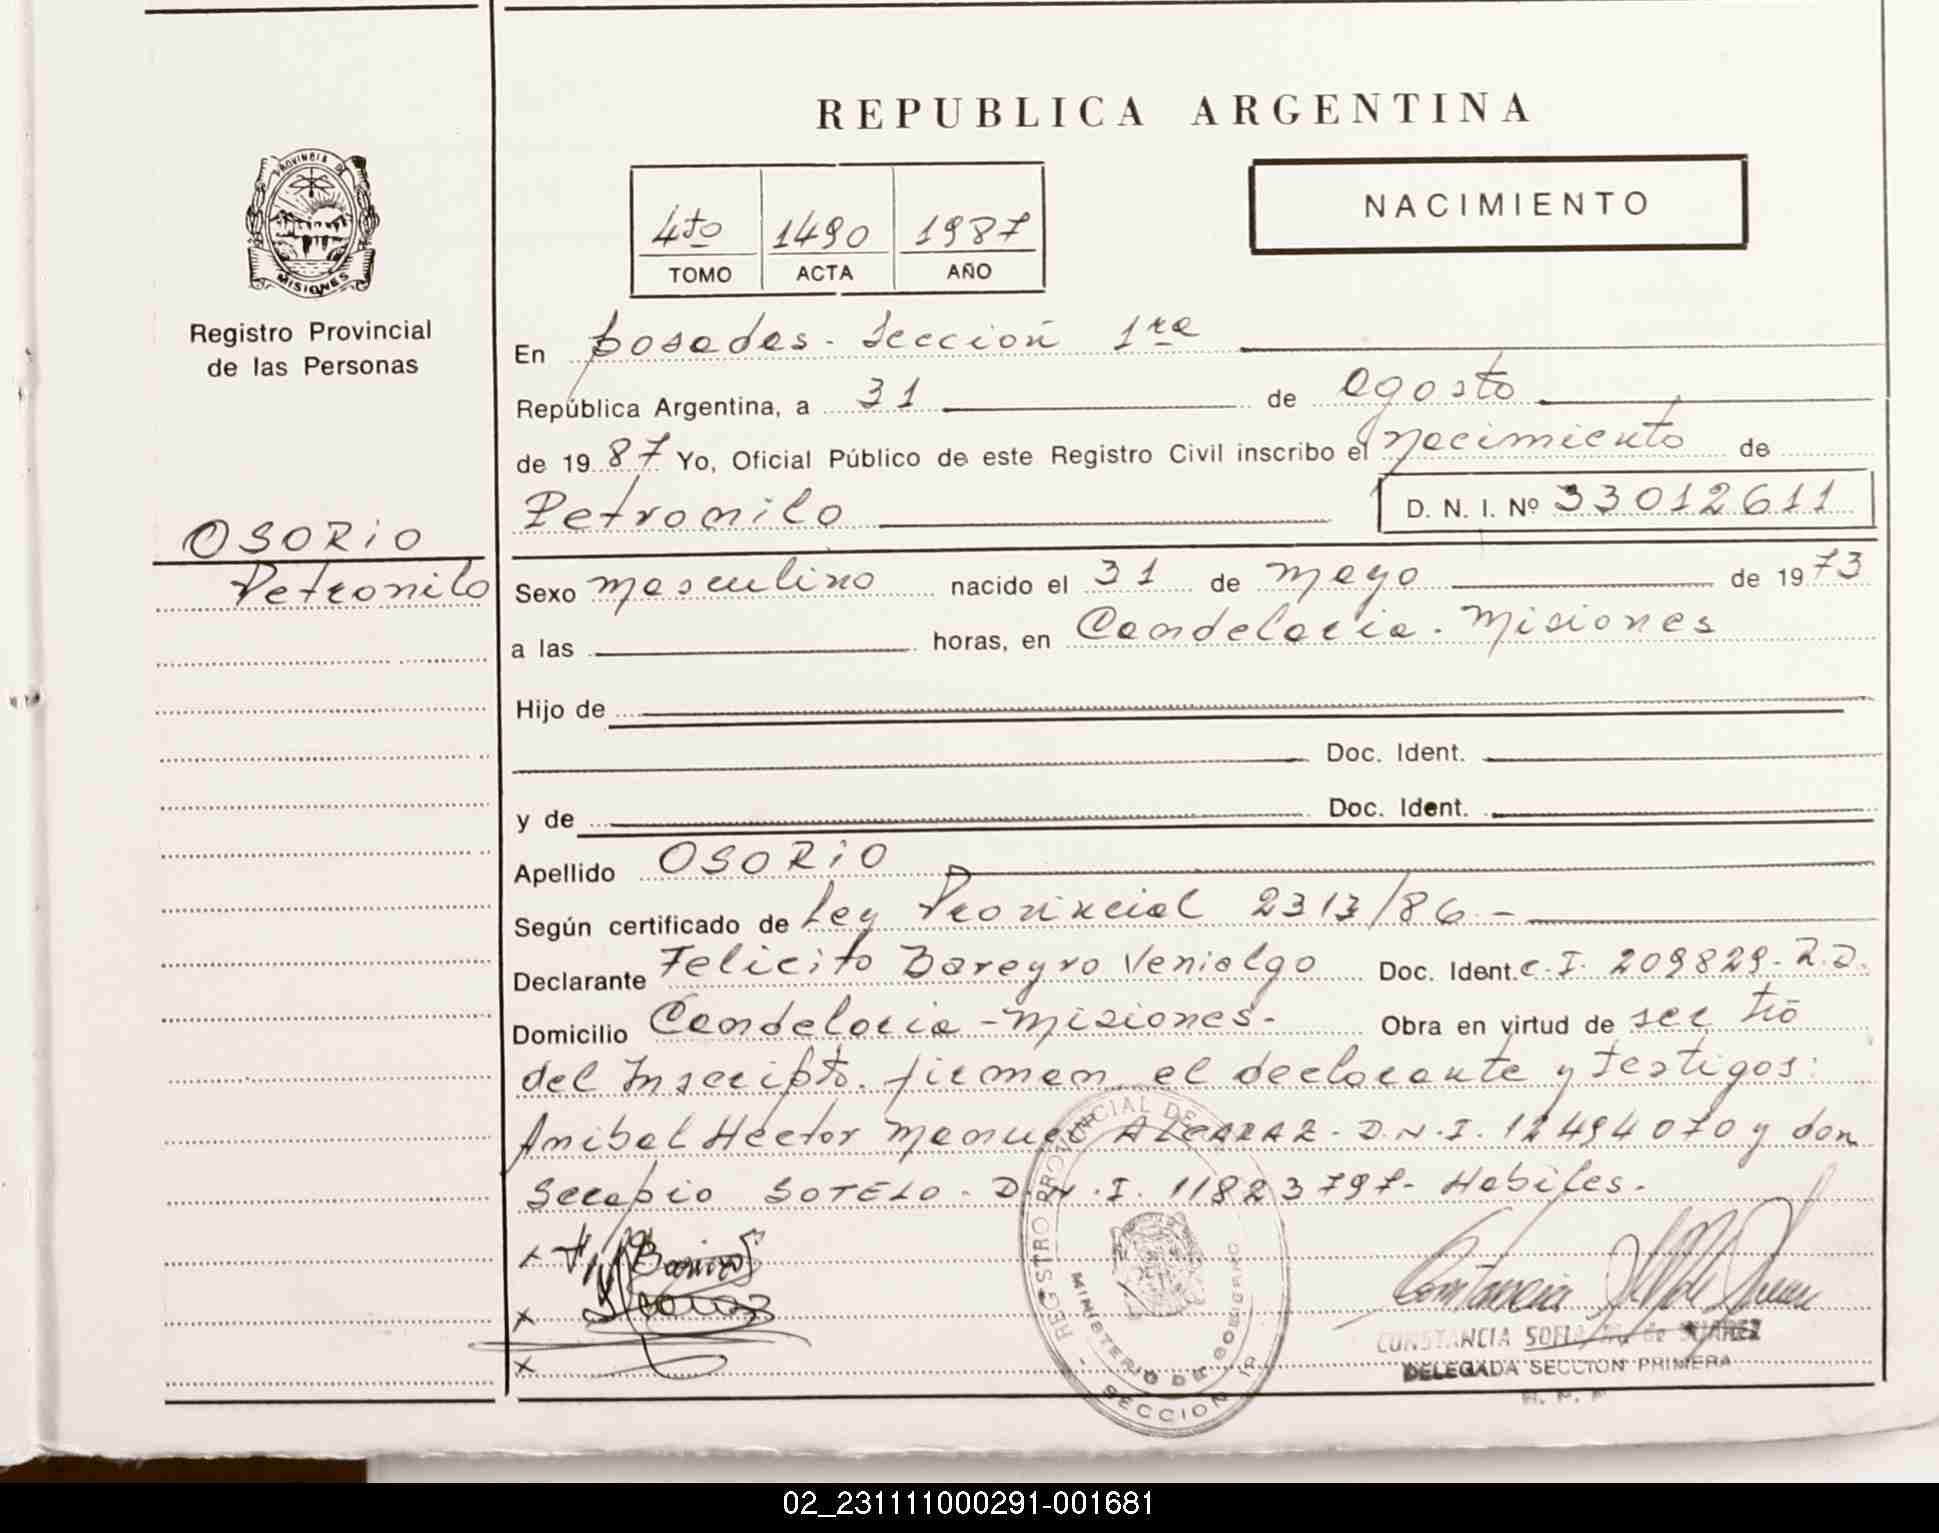 REPUBLICA ARGENTINA
PROVINCIA DE
MISIONES
Registro Provincial
de las Personas
4to 1490 1987
TOMO ACTA AÑO
NACIMIENTO
En Posadas - Sección 1ra
República Argentina, a 31 de agosto
de 1987 Yo, Oficial Público de este Registro Civil inscribo el nacimiento de
Petronilo D. N. I. Nº 33012611
OSORiO
Petronilo
Sexo masculino nacido el 31 de mayo de 1973
a las horas, en Candelaria - Misiones
Hijo de
Doc. Ident.
y de Doc. Ident.
Apellido OSORiO
Según certificado de Ley Provincial 2313/86.-
Declarante Felicito Bareyro Venialgo Doc. Ident. C.I. 209829-
Domicilio Candelaria - Misiones - Obra en virtud de ser tío
del Inscripto. firman el declarante y testigos:
Anibal Hector Manuel ALCARAZ - D.N.I. 12494070 y don
Serapio SOTELO - D.N.I. 11823797 - Habiles.
REGISTRO PROVINCIAL DE
MINISTERIO DE GOBIERNO
SECCION 1ª
CONSTANCIA SOFIA M. de SUAREZ
DELEGADA SECCION PRIMERA
02_231111000291-001681